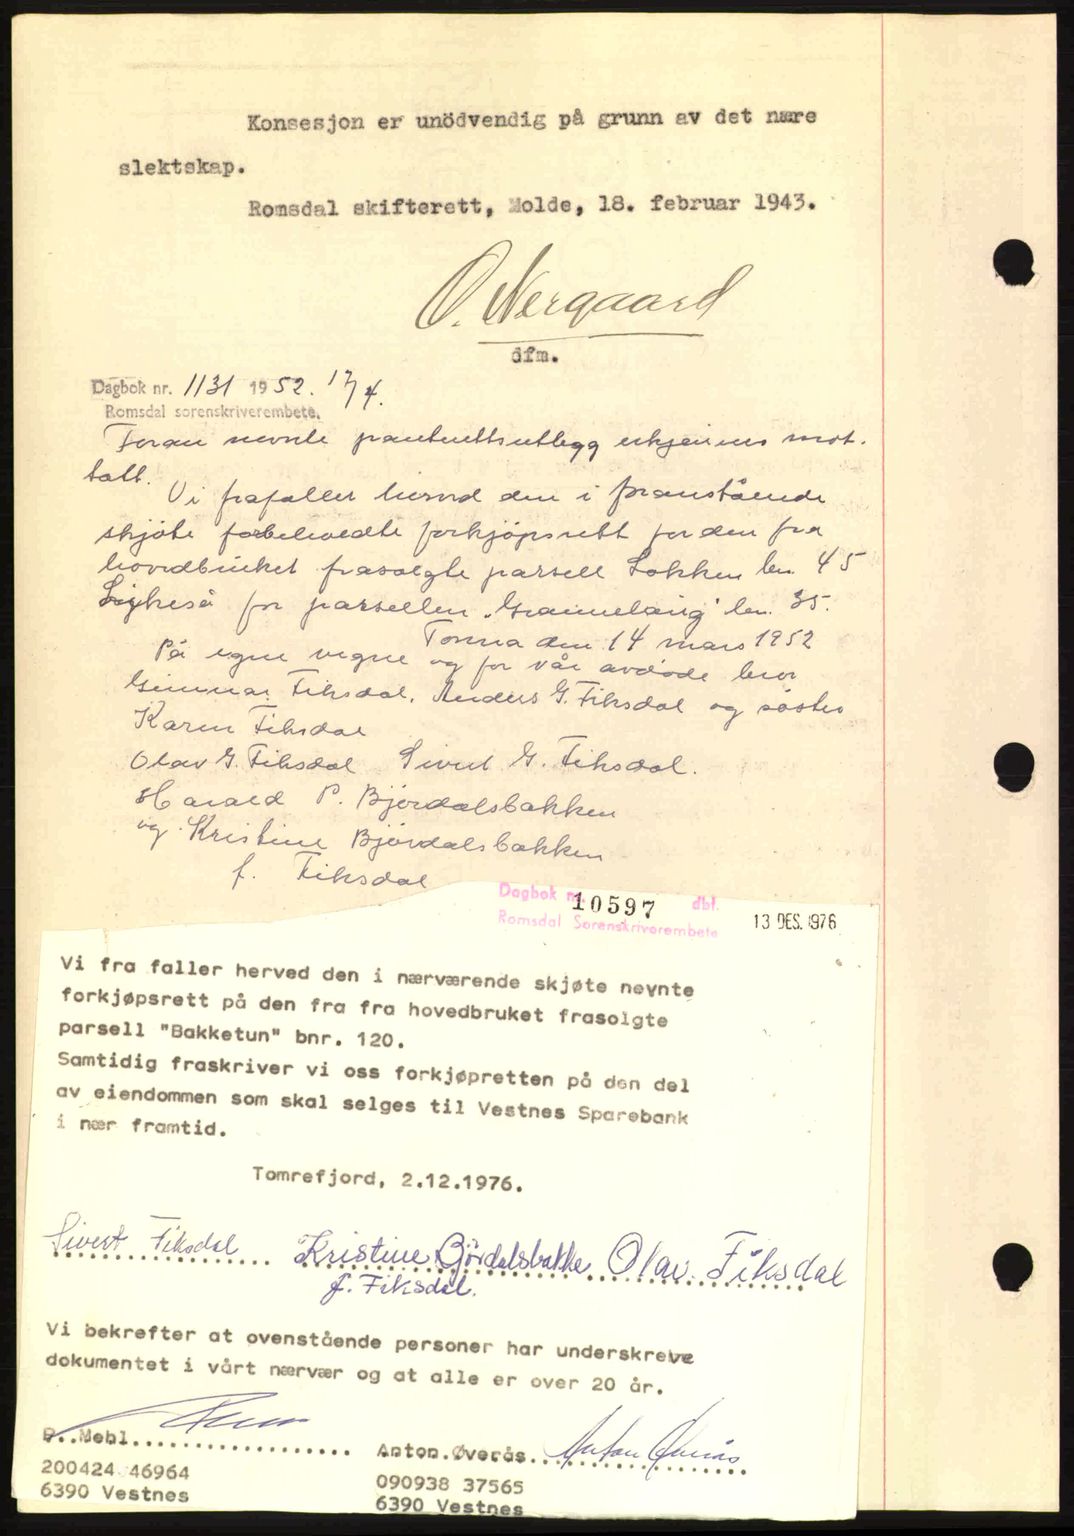 Konsesjon er unödvendig på grunn av det nære
slektskap.
Romsdal skifterett, Molde, 18. februar 1943.
O. Nergaard
dfm.
Dagbok nr. 1131 1952. 17/4.
Romsdal sorenskriverembete.
Foran nevnte panterettsutlegg erkjennes mot-
tatt.
Vi frafaller herved den i foranstående
skjöte forbeholdte forkjöpsrett for den fra
hovedbruket frasolgte parsell Løkken bnr. 45
Likeså for parsellen "Granneleng" bnr. 35.
Tomra den 14 mars 1952
På egne vegne og for vår avdøde bror
Gunnar Fiksdal, Anders G. Fiksdal og søster
Karen Fiksdal
Olav G. Fiksdal Sivert G. Fiksdal.
Harald P. Bjørdalsbakken
og Kristine Bjørdalsbakken
f. Fiksdal
Dagbok nr. 10597 dbf. 13 DES. 1976
Romsdal Sorenskriverembete
Vi fra faller herved den i nærværende skjøte nevnte
forkjøpsrett på den fra fra hovedbruket frasolgte
parsell "Bakketun" bnr. 120.
Samtidig fraskriver vi oss forkjøpretten på den del
av eiendommen som skal selges til Vestnes Sparebank
i nær framtid.
Tomrefjord, 2.12.1976.
Sivert Fiksdal Kristine Bjørdalsbakke Olav Fiksdal
f. Fiksdal.
Vi bekrefter at ovenstående personer har underskreve
dokumentet i vårt nærvær og at alle er over 20 år.
P. Mehl Anton Øverås. Anton Øverås
200424 46964 090938 37565
6390 Vestnes 6390 Vestnes